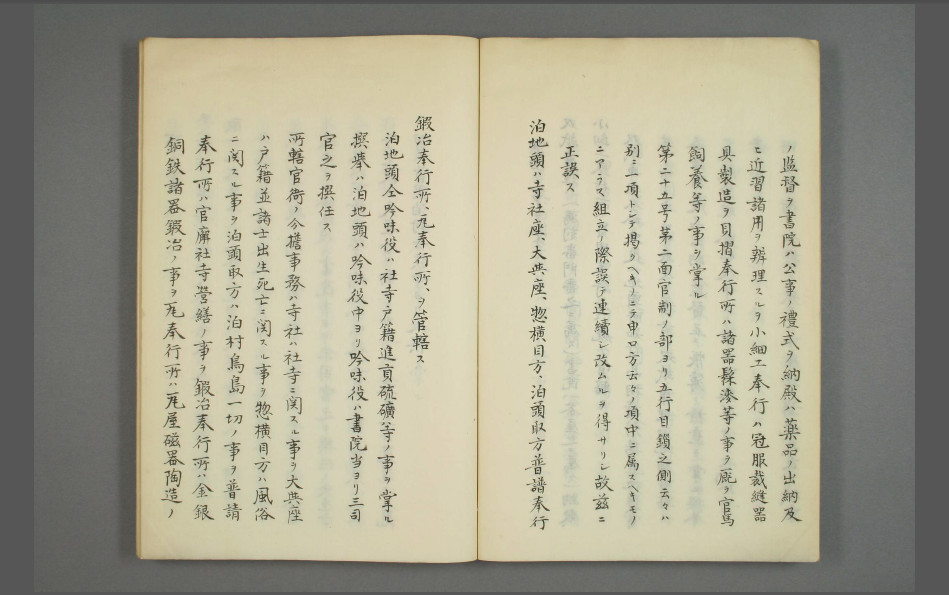 ノ監督ヲ書院ハ公事ノ禮式ヲ納殿ハ薬品ノ出納及
ヒ近習諸用ヲ辨理スルヲ小細工奉行ハ冠服裁縫器
具製造ヲ貝摺奉行所ハ諸器髹漆等ノ事ヲ厩ヲ官馬
飼養等ノ事ヲ掌ル
第二十五号第二面官制ノ部ヨリ五行目鎖之側云々ハ
別ニ一項トシテ掲クヘキノニテ申口方云々ノ項中ニ属スヘキモノ
ニアラス組立ノ際誤テ連續シ改ムルヲ得サリシ故茲ニ
正誤ス
泊地頭ハ寺社座、大與座、惣横目方、泊頭取方普譜奉行
鍛冶奉行所、瓦奉行所、ヲ管轄ス
泊地頭仝吟味役ハ社寺戸籍進貢硫礦等ノ事ヲ掌ル
撰挙ハ泊地頭ハ吟味役中ヨリ吟味役ハ書院当ヨリ三司
官之ヲ撰任ス
所轄官衙ノ分擔事務ハ寺社ハ社寺ニ関スル事ヲ大與座
ハ戸籍並諸士出生死亡ニ関スル事ヲ惣横目方ハ風俗
ニ関スル事ヲ泊頭取方ハ泊村鳥島一切ノ事ヲ普請
奉行所ハ官廨社寺營繕ノ事ヲ鍛冶奉行所ハ金銀
銅鉄諸器鍛冶ノ事ヲ瓦奉行所ハ瓦屋磁器陶造ノ